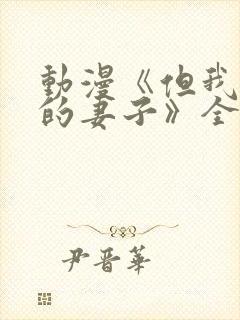 動漫《但我
的妻子》全
尹晋華